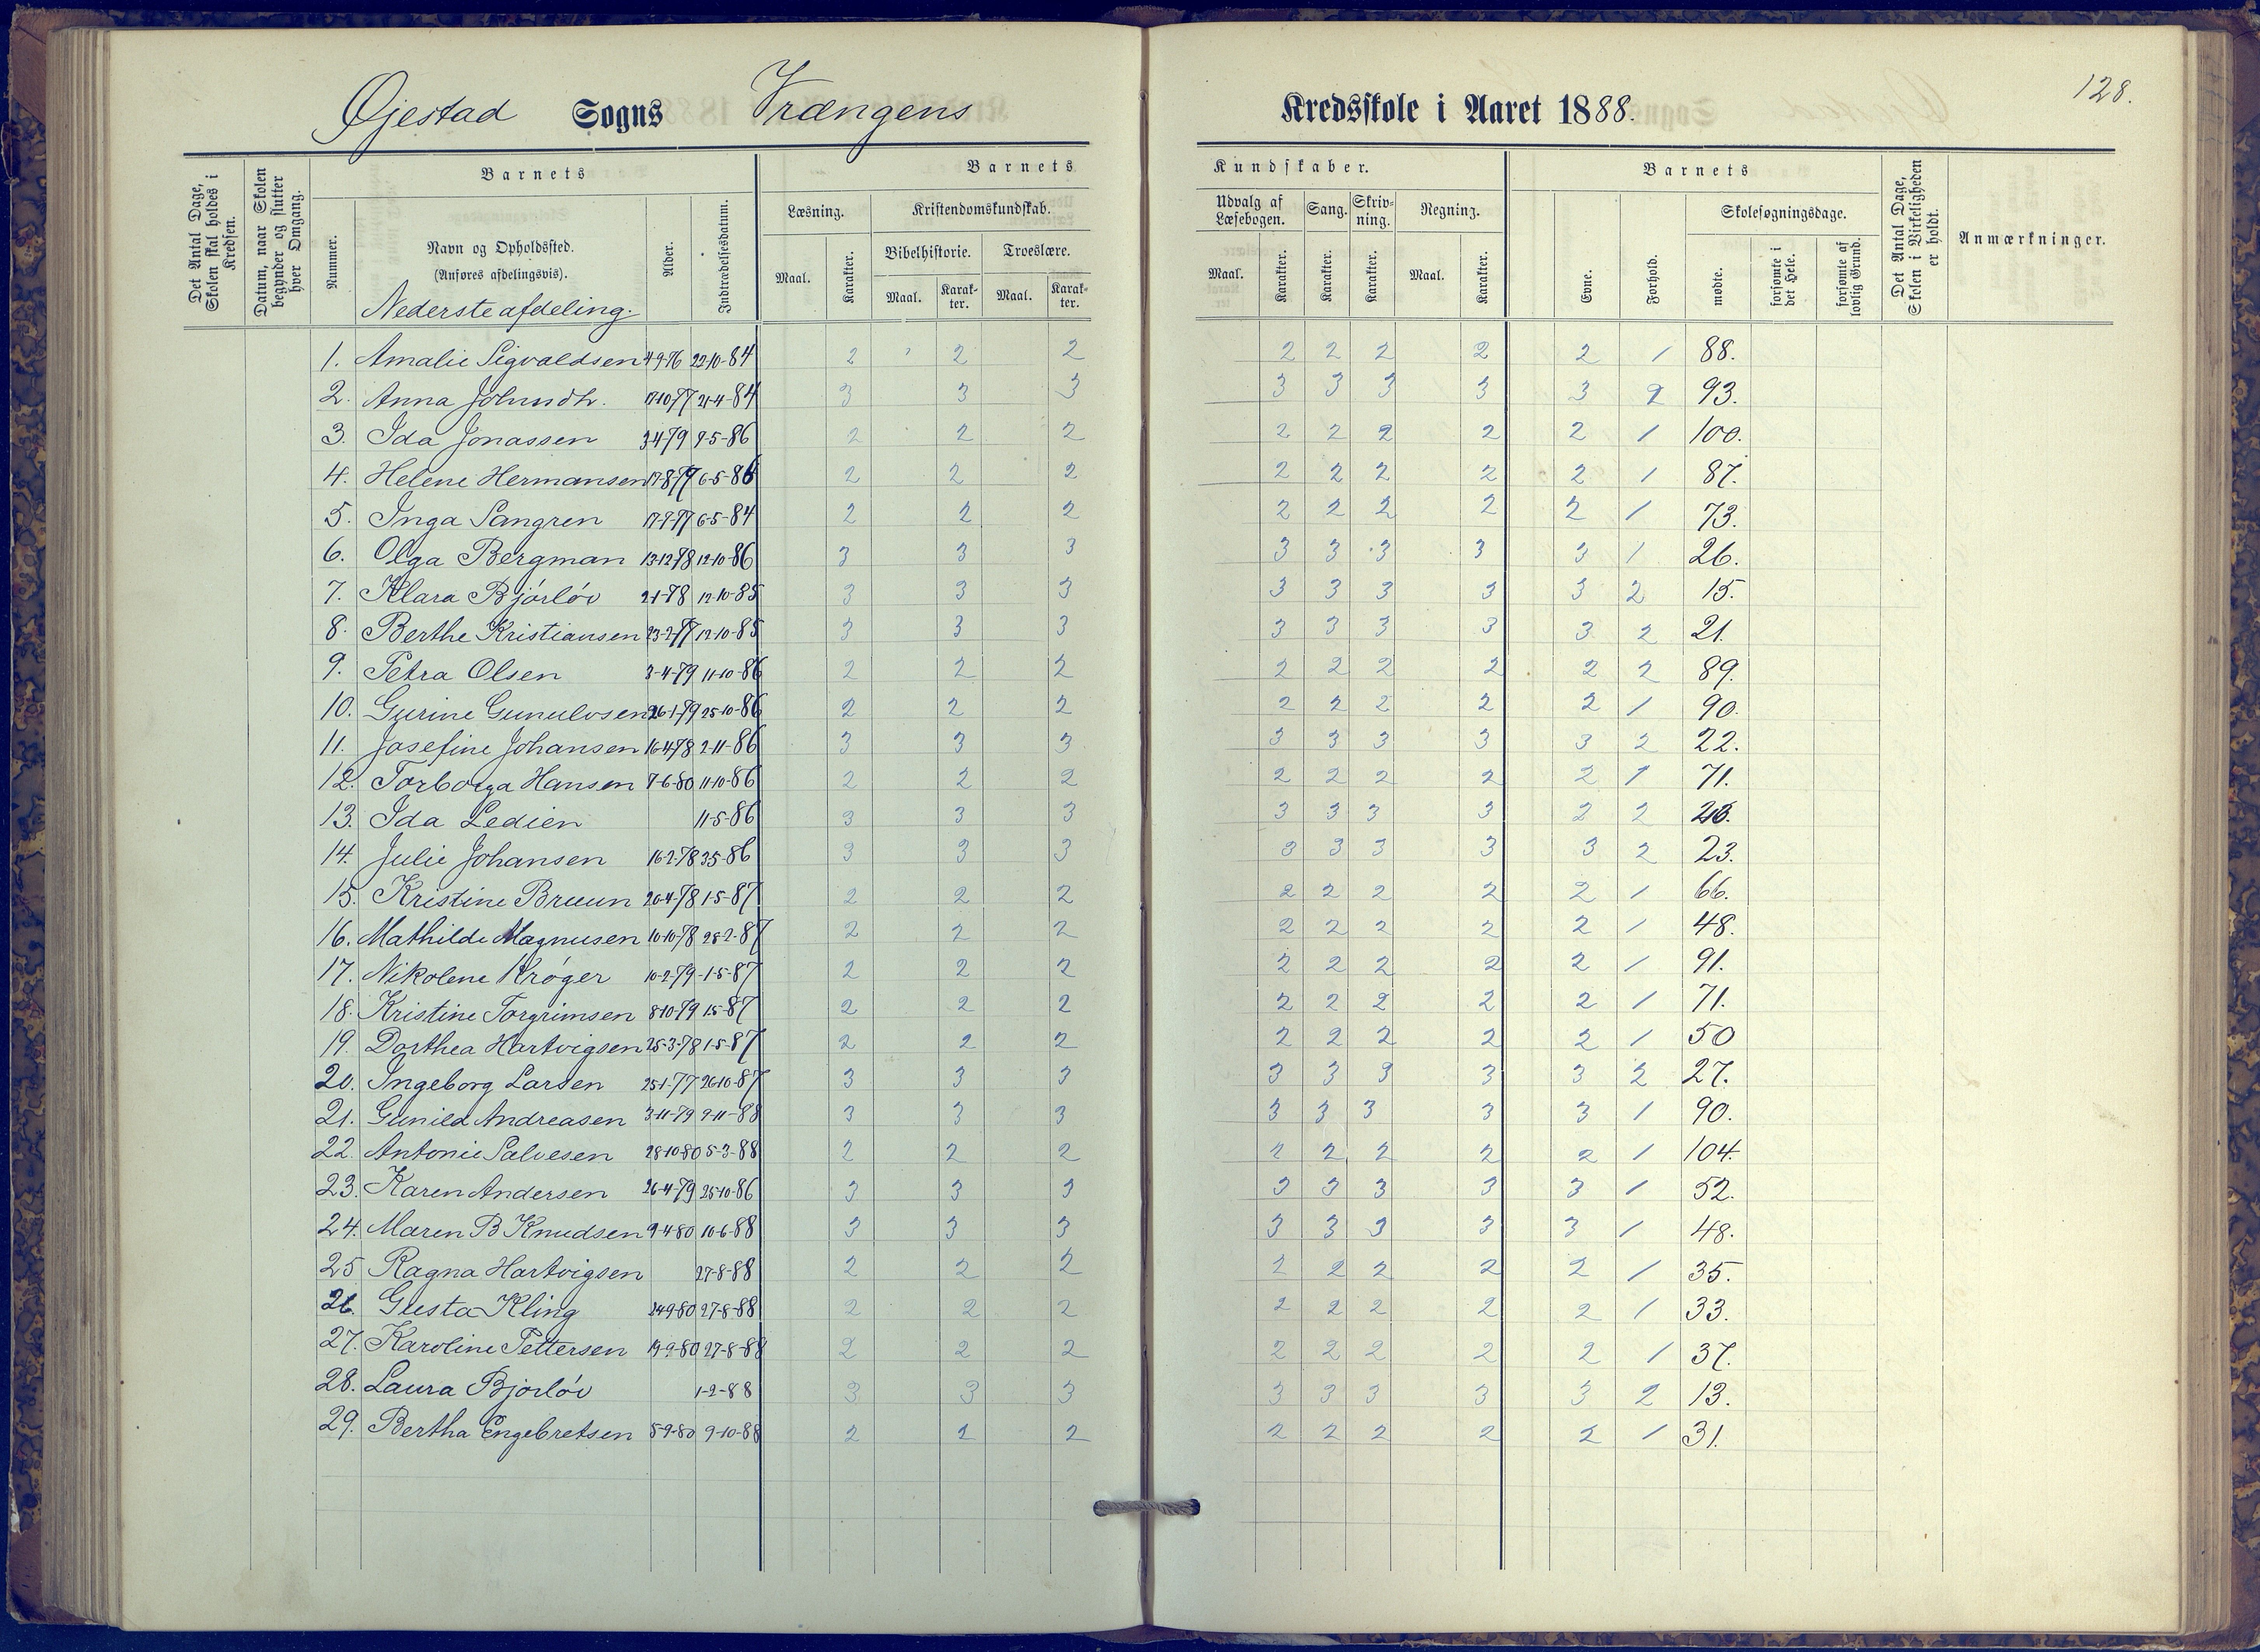 128.
Øjestad Sogns Vrængens Kredsskole i Aaret 1888.
Det Antal Dage, Skolen skal holdes i Kredsen.
Datum, naar Skolen begynder og slutter hver Omgang.
Barnets
Nummer.
Navn og Opholdssted.
(Anføres afdelingsvis).
Nederste afdeling.
Alder.
Indtrædelsesdatum.
Barnets Kundskaber.
Læsning.
Maal. Karakter.
Kristendomskundskab.
Bibelhistorie. Troeslære.
Maal. Karakter. Maal. Karakter.
Udvalg af Læsebogen.
Maal. Karakter.
Sang. Karakter.
Skrivning. Karakter.
Regning.
Maal. Karakter.
Barnets
Evne. Forhold.
Skolesøgningsdage.
mødte. forsømte i det Hele. forsømte af lovlig Grund.
Det Antal Dage, Skolen i Virkeligheden er holdt.
Anmærkninger.
1. Amalie Sigvaldsen 4-9-76 22-10-84 2 2 2 2 2 2 2 2 1 88.
2. Anna Johnsdtr. 17-10-77 21-4-84 3 3 3 3 3 3 3 3 2 93.
3. Ida Jonassen 3-4-79 9-5-86 2 2 2 2 2 2 2 2 1 100.
4. Helene Hermansen 17-8-79 6-5-86 2 2 2 2 2 2 2 2 1 87.
5. Inga Sangren 17-9-77 6-5-84 2 2 2 2 2 2 2 2 1 73.
6. Olga Bergman 13-12-78 12-10-86 3 3 3 3 3 3 3 3 1 26.
7. Klara Bjórlóv 2-1-78 12-10-85 3 3 3 3 3 3 3 3 2 15.
8. Berthe Kristiansen 23-2-77 12-10-85 3 3 3 3 3 3 3 3 2 21.
9. Petra Olsen 3-4-79 11-10-86 2 2 2 2 2 2 2 2 2 89.
10. Gurine Gunulvsen 26-1-79 25-10-86 2 2 2 2 2 2 2 2 1 90.
11. Josefine Johansen 16-4-78 2-11-86 3 3 3 3 3 3 3 3 2 22.
12. Torborga Hansen 7-6-80 11-10-86 2 2 2 2 2 2 2 2 1 71.
13. Ida Ledien 11-5-86 3 3 3 3 3 3 3 2 2
14. Julie Johansen 16-2-78 3-5-86 3 3 3 3 3 3 3 3 2 23.
15. Kristine Bruun 20-4-78 1-5-87 2 2 2 2 2 2 2 2 1 66.
16. Mathilde Magnusen 10-10-78 28-2-87 2 2 2 2 2 2 2 2 1 48.
17. Nikolene Króger 10-2-79 1-5-87 2 2 2 2 2 2 2 2 1 91.
18. Kristine Torgrimsen 8-10-79 1-5-87 2 2 2 2 2 2 2 2 1 71.
19. Dorthea Hartvigsen 25-3-78 1-5-87 2 2 2 2 2 2 2 2 1 50
20. Ingeborg Larsen 25-1-77 26-10-87 3 3 3 3 3 3 3 3 2 27.
21. Gunild Andreasen 3-11-79 9-11-88 3 3 3 3 3 3 3 3 1 90.
22. Antonie Salvesen 28-10-80 5-3-88 2 2 2 2 2 2 2 2 1 104.
23. Karen Andersen 26-4-79 25-10-86 3 3 3 3 3 3 3 3 1 52.
24. Maren B Knudsen 9-4-80 10-6-88 3 3 3 3 3 3 3 3 1 48.
25 Ragna Hartvigsen 27-8-88 2 2 2 2 2 2 2 2 1 35.
26. Gusta Kling 24-9-80 27-8-88 2 2 2 2 2 2 2 2 1 33.
27. Karoline Pettersen 19-9-80 27-8-88 2 2 2 2 2 2 2 2 1 37.
28. Laura Bjorlóv 1-2-88 3 3 3 3 3 3 3 3 2 13.
29. Bertha Engebretsen 5-9-80 9-10-88 2 2 2 2 2 2 2 2 1 31.